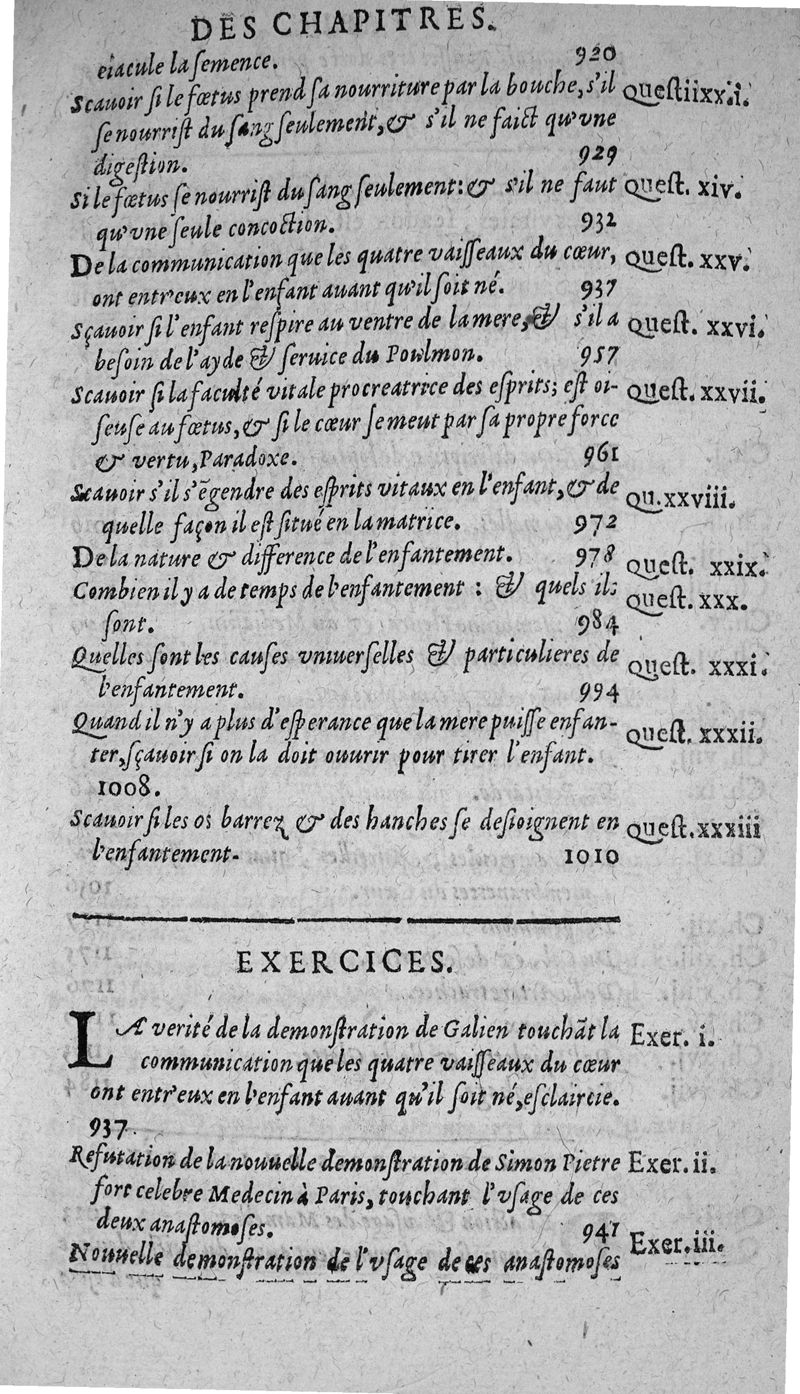 DES CHAPITRES.
eiacule la semence. 920
Scauoir si le fœtus prend sa nourriture par la bouche, s'il Questiixx.i.
se nourrist du sang seulement, & s'il ne faict qu'vne
digestion. 929
Si le fœtus se nourrist du sang seulement: & s'il ne faut Quest. xiv.
qu'vne seule concoction. 932
De la communication que les quatre vaisseaux du cœur, Quest. xxv.
ont entr'eux en l'enfant auant qu'il soit né. 937
Sçauoir si l'enfant respire au ventre de la mere, & s'il a Quest. xxvi.
besoin de l'ayde & seruice du Poulmon. 957
Scauoir si la faculté vitale procreatrice des esprits; est oi- Quest. xxvii.
seuse au fœtus, & si le cœur se meut par sa propre force
& vertu, Paradoxe. 961
Scauoir s'il s'ẽgendre des esprits vitaux en l'enfant, & de Qu. xxviii.
quelle façon il est situé en la matrice. 972
De la nature & difference de l'enfantement. 978 Quest. xxix.
Combien il y a de temps de l'enfantement : & quels ils Quest. xxx.
sont. 984
Quelles sont les causes vniuerselles & particulieres de Quest. xxxi.
l'enfantement. 994
Quand il n'y a plus d'esperance que la mere puisse enfan- Quest. xxxii.
ter, sçauoir si on la doit ouurir pour tirer l'enfant.
1008.
Scauoir si les os barrez & des hanches se desioignent en Quest. xxxiii
l'enfantement. 1010
EXERCICES.
LA verité de la demonstration de Galien touchãt la Exer. i.
communication que les quatre vaisseaux du cœur
ont entr'eux en l'enfant auant qu'il soit né, esclaircie.
937.
Refutation de la nouuelle demonstration de Simon Pietre Exer. ii.
fort celebre Medecin à Paris, touchant l'vsage de ces
deux anastomoses. 941
Nouuelle demonstration de l'vsage de ces anastomoses Exer. iii.